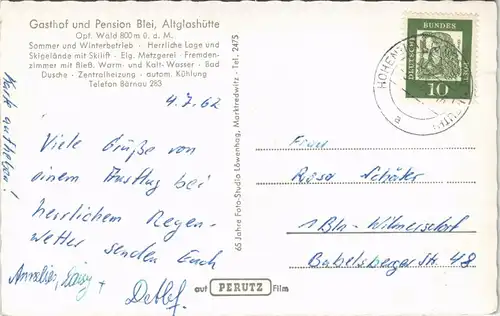 Gasthof und Pension Blei, Altglashütte
Opf. Wald 800 m ü. d. M.
Sommer und Winterbetrieb - Herrliche Lage und
Skigelände mit Skilift - Elg. Metzgerei - Fremden-
zimmer mit fließ. Warm- und Kalt-Wasser - Bad
Dusche - Zentralheizung - autom. Kühlung
Telefon Bärnau 283
Karte aufheben!
4.7.62
Viele Grüße von
einem Ausflug bei
herrlichem Regen-
wetter senden Euch
Annelies, +
Detlef.
65 Jahre Foto-Studio Löwenhag, Marktredwitz - Tel. 2475
auf PERUTZ Film
DEUTSCHE BUNDESPOST
10
HOHEN
a
Frau
Rosa Schäfer
1 Bln-Wilmersdorf
Babelsberger Str. 48